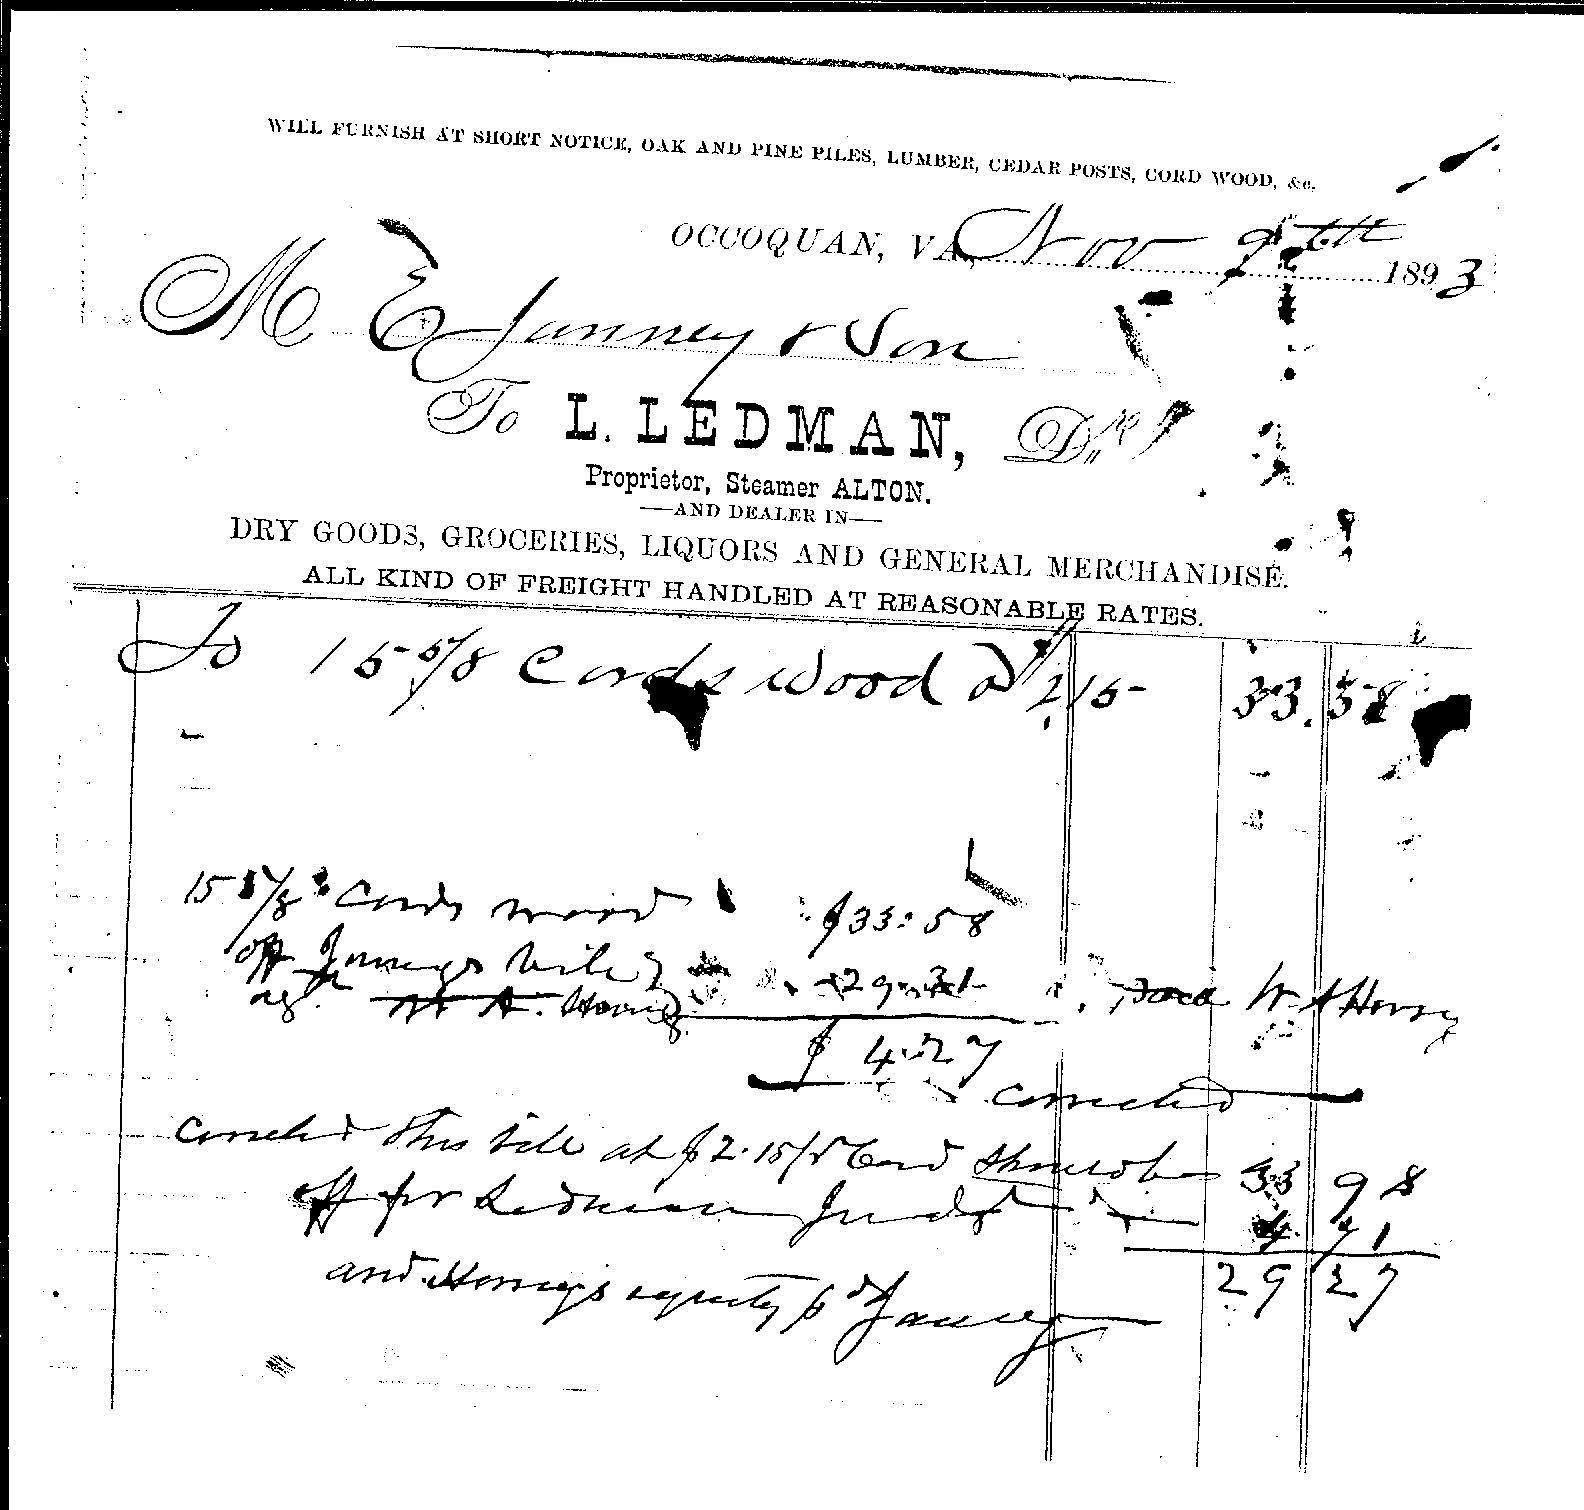 WILL FURNISH AT SHORT NOTICE, OAK AND PINE PILES, LUMBER, CEDAR POSTS, CORD WOOD, &c.
OCCOQUAN, VA., Nov 9th 1893
M E Janney & Son
To L. LEDMAN, Dr.
Proprietor, Steamer ALTON.
—AND DEALER IN—
DRY GOODS, GROCERIES, LIQUORS AND GENERAL MERCHANDISE.
ALL KIND OF FREIGHT HANDLED AT REASONABLE RATES.
To 15 5/8 Cords Wood a 2 15 33.58
15 5/8 Cords wood $33:58
off Janneys bill 29.31
agt W. A. Hornig W A Horny
$ 4.27
corrected
Corrected this bill at $2.15/ Cord Should be 33 98
off for Ledman Judgt 4 71
29 27
and Hornigs equity pd Janney